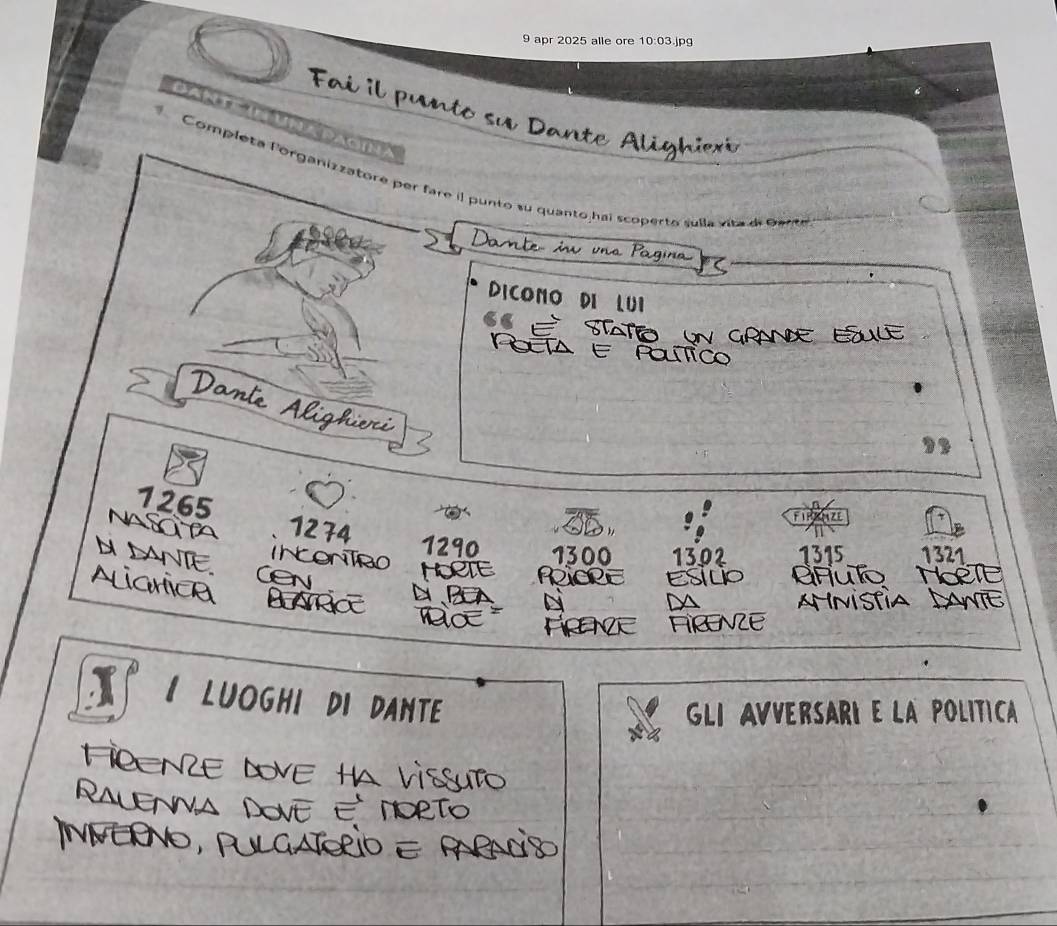 9 apr 2025 alle ore 10:03.jpg
Fai il punto su Dante Alighieri
DANTE IN UNA PAGINA
Completa l'organizzatore per fare il punto su quanto hai scoperto sulla vita di Dante.
Dante in una Pagina
DICONO DI LUI
“ È STATO UN GRANDE ESULE
POETA E POLITICO
”
Dante Alighieri
1265
NASCITA
DI DANTE
ALIGHIERI
1274
INCONTRO
CON
BEATRICE
1290
MORTE
DI BEA
TRICE
1300
PRIORE
DI
FIRENZE
1302
ESILIO
DA
FIRENZE
FIRENZE
1315
RIFIUTO
AMNISTIA
1321
MORTE
DANTE
I LUOGHI DI DANTE
FIRENZE DOVE HA VISSUTO
RAVENNA DOVE E' MORTO
INFERNO, PULGATORIO E PARADISO
GLI AVVERSARI E LA POLITICA